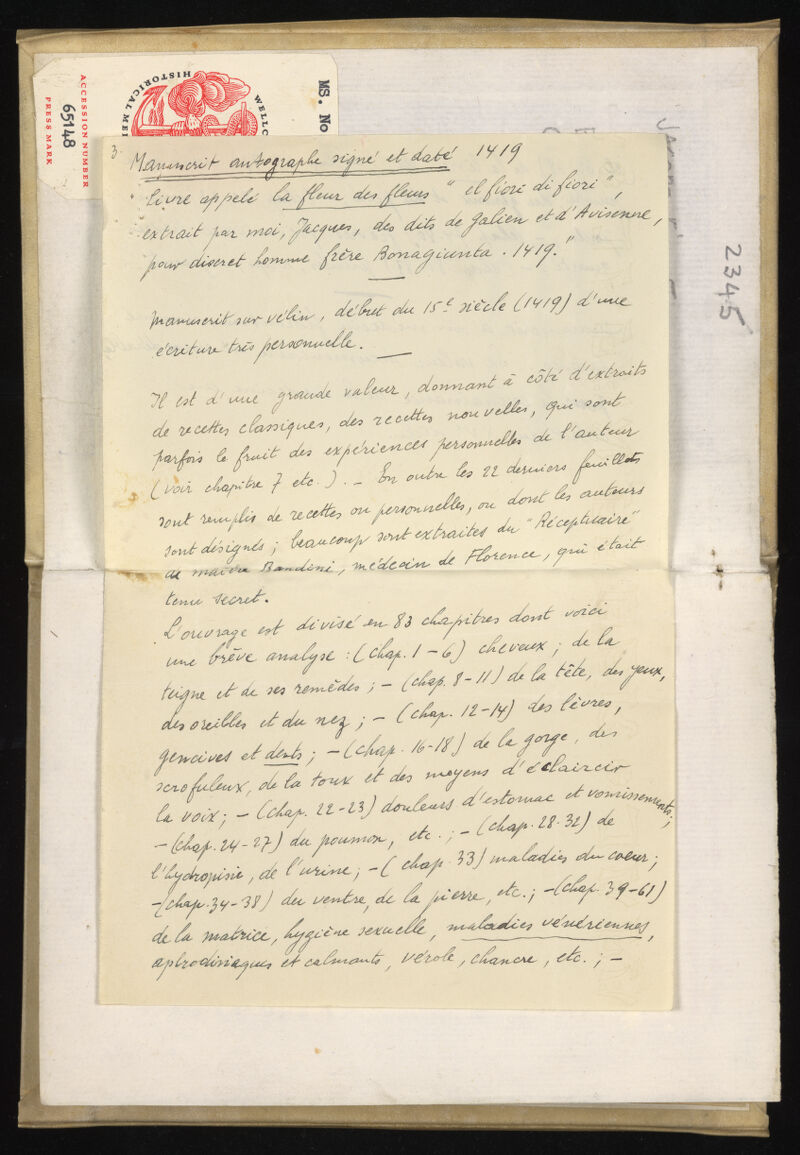 WELLC
HISTORICAL ME
ACCESSION NUMBER
65148
PRESS MARK
MS. No
2345
3.
Manuscrit autographe signé et daté 1419
"Livre appelé la fleur des fleurs "el fiori di fiori",
extrait par moi, Jacques, des dits de Galien et d'Avisenne,
pour discret homme frère Bonagiunta. 1419."
Manuscrit sur vélin, début du 15e siècle (1419) d'une
écriture très personnelle.
Il est d'une grande valeur, donnant à côté d'extraits
de recettes classiques, des recettes nouvelles, qui sont
parfois le fruit des expériences personnelles de l'auteur
(voir chapitre 7 etc.). – En outre les 22 derniers feuillets
sont remplis de recettes ou personnelles, ou dont les auteurs
sont désignés; beaucoup sont extraites du "Réceptuaire"
de maitre Bandini, médecin de Florence, qui était
tenu secret.
L'ouvrage est divisé en 83 chapitres dont voici
une brève analyse: (Chap. 1 – 6) cheveux; de la
teigne et de ses remèdes; – (chap. 8 – 11) de la tête, des yeux,
des oreilles et du nez; – (chap. 12-14) des lèvres,
gencives et dents; – (chap. 16-18) de la gorge, des
scrofuleux, de la toux et des moyens d'éclaircir
la voix; – (chap. 22-23) douleurs d'estomac et vomissements;
– (chap. 24-27) du poumon, etc.; – (chap. 28-32) de
l'hydropisie, de l'urine; – (chap. 33) maladies du coeur;
– (chap. 34-38) du ventre, de la pierre, etc.; – (chap. 39-61)
de la matrice, hygiène sexuelle, maladies vénériennes,
aphrodisiaques et calmants, vérole, chancre, etc.; –